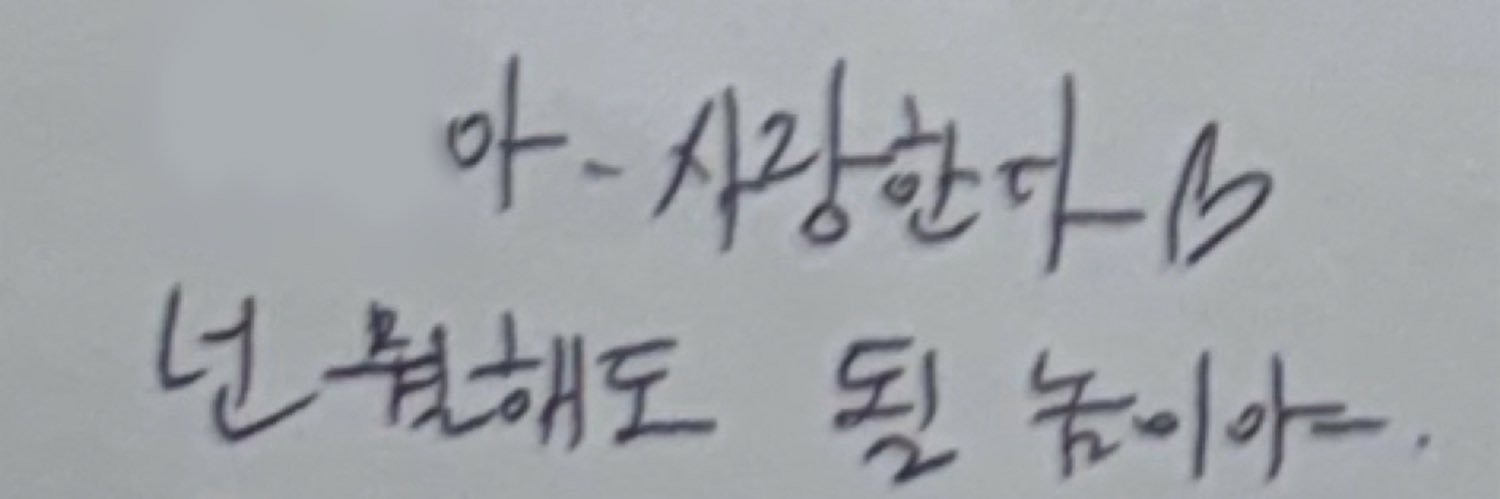 아- 사랑한다 ♡
넌 뭘해도 될 놈이야.